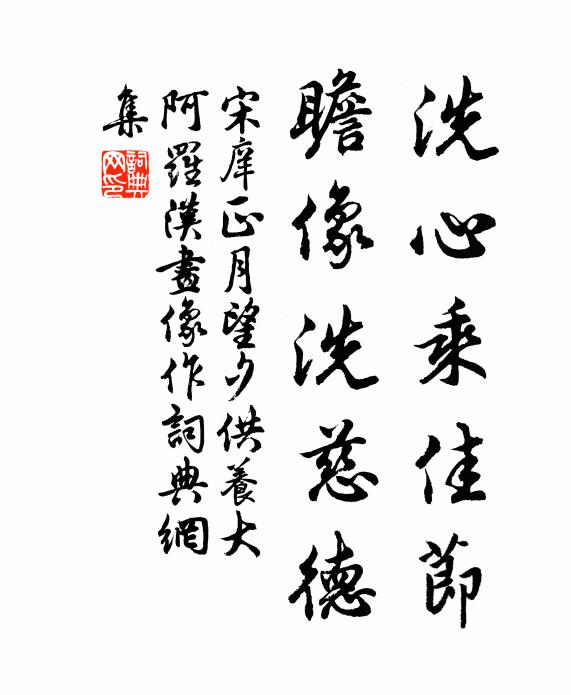 洗心乘佳節
瞻像洗慈德
宋庠正月望夕供養大
阿羅漢畫像作詞典網
集
詞典
网印